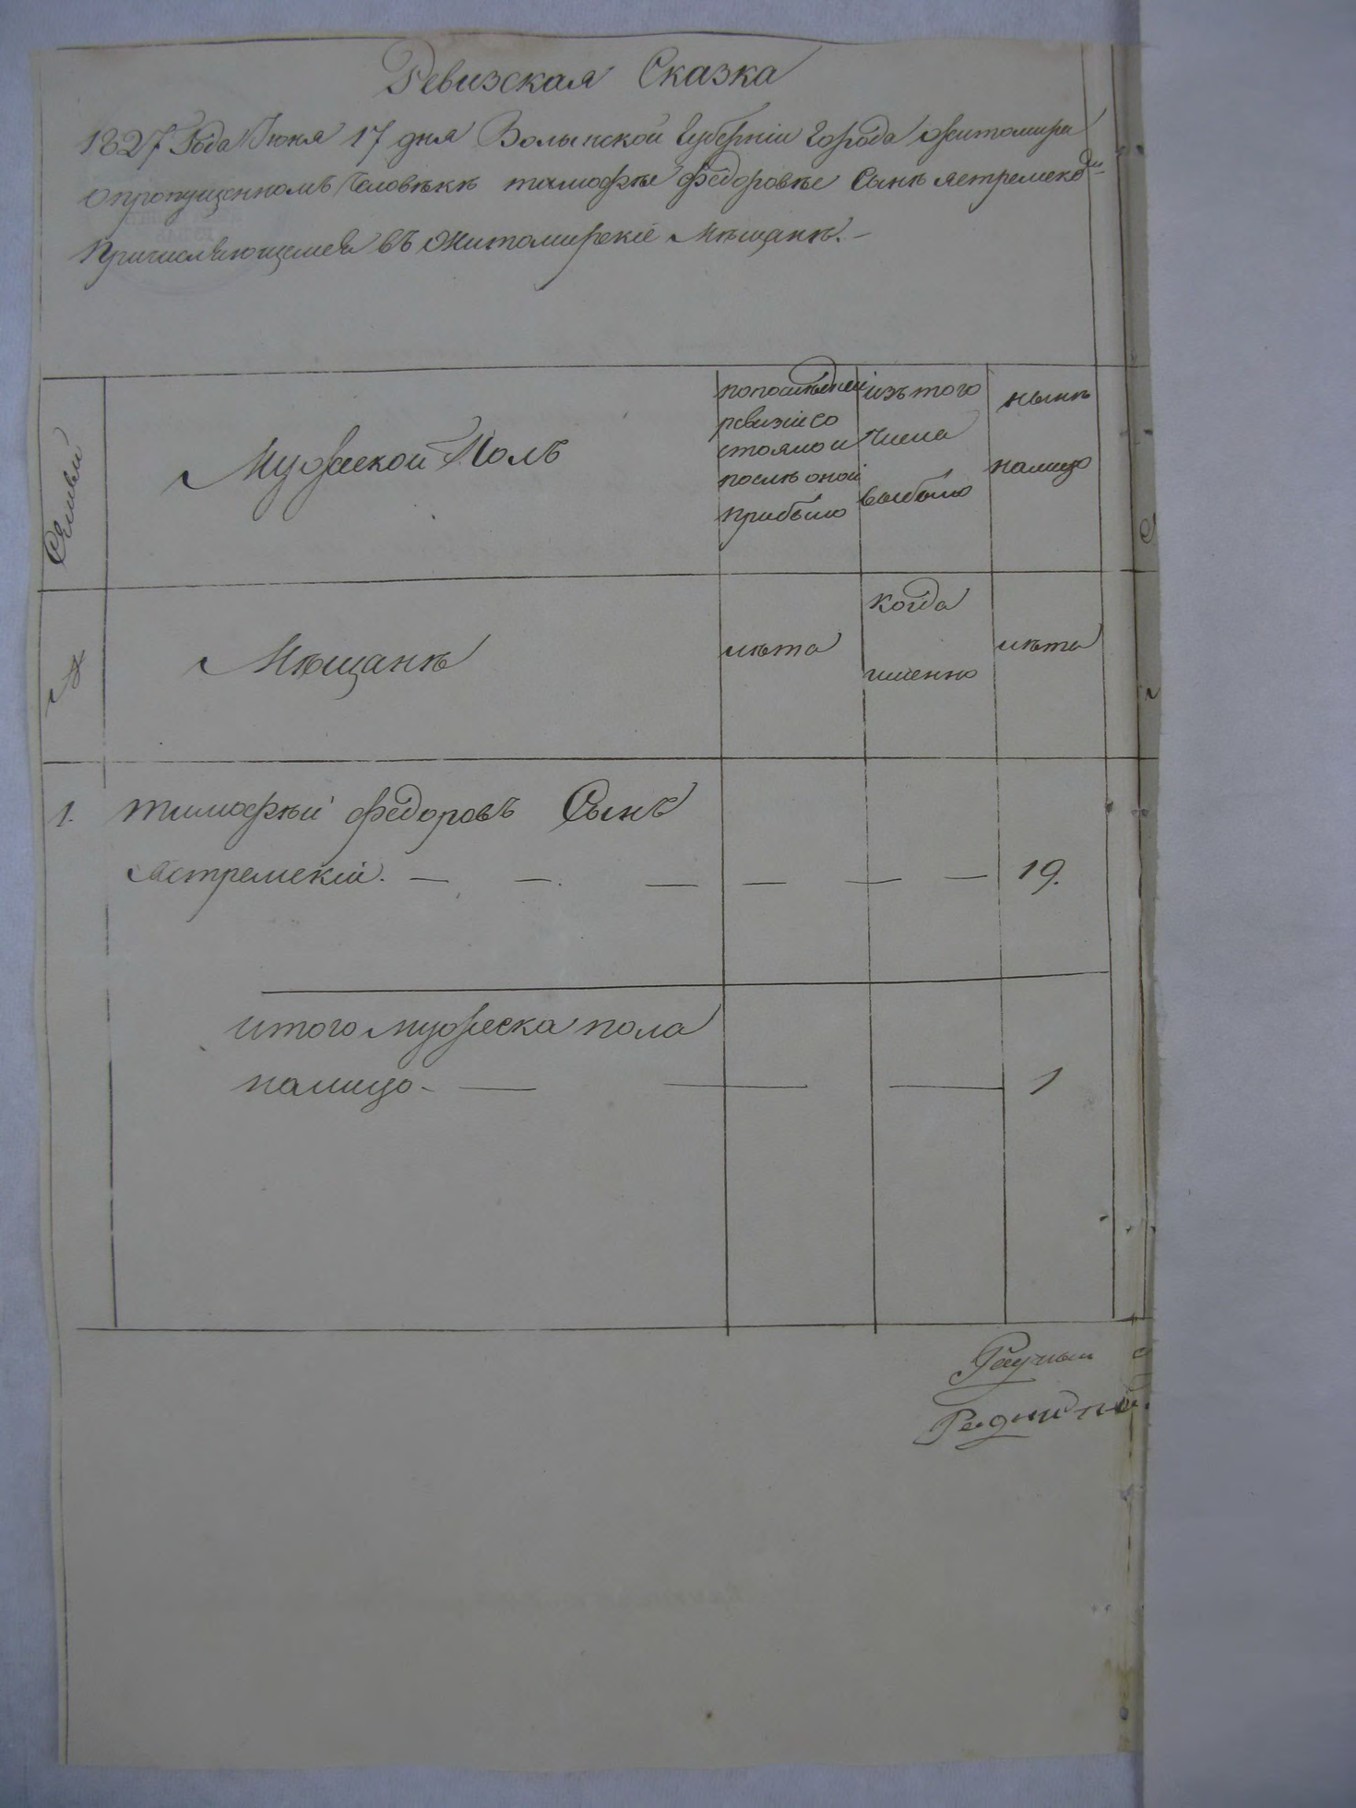 Ревизская Сказка
1827 Года Июня 17 дня Волынской Губерніи Города Житомира
о пропущенномъ Человѣкѣ тимофѣе федоровѣе Сынѣ ястремско
Причисляющемся въ Житомирскіе Мѣщанѣ. –
Семьи
Мужескои Полъ
по последней
ревизіи со
стояло и
послѣ оной
прибыло
изъ того
числа
выбыло
нынѣ
налицо
№
Мѣщанѣ
лѣта
когда
именно
лѣта
1. тимофѣй федоровъ Сынъ
Ястремскій. — — — — — — 19.
итого мужеска пола
налицо - — — — 1